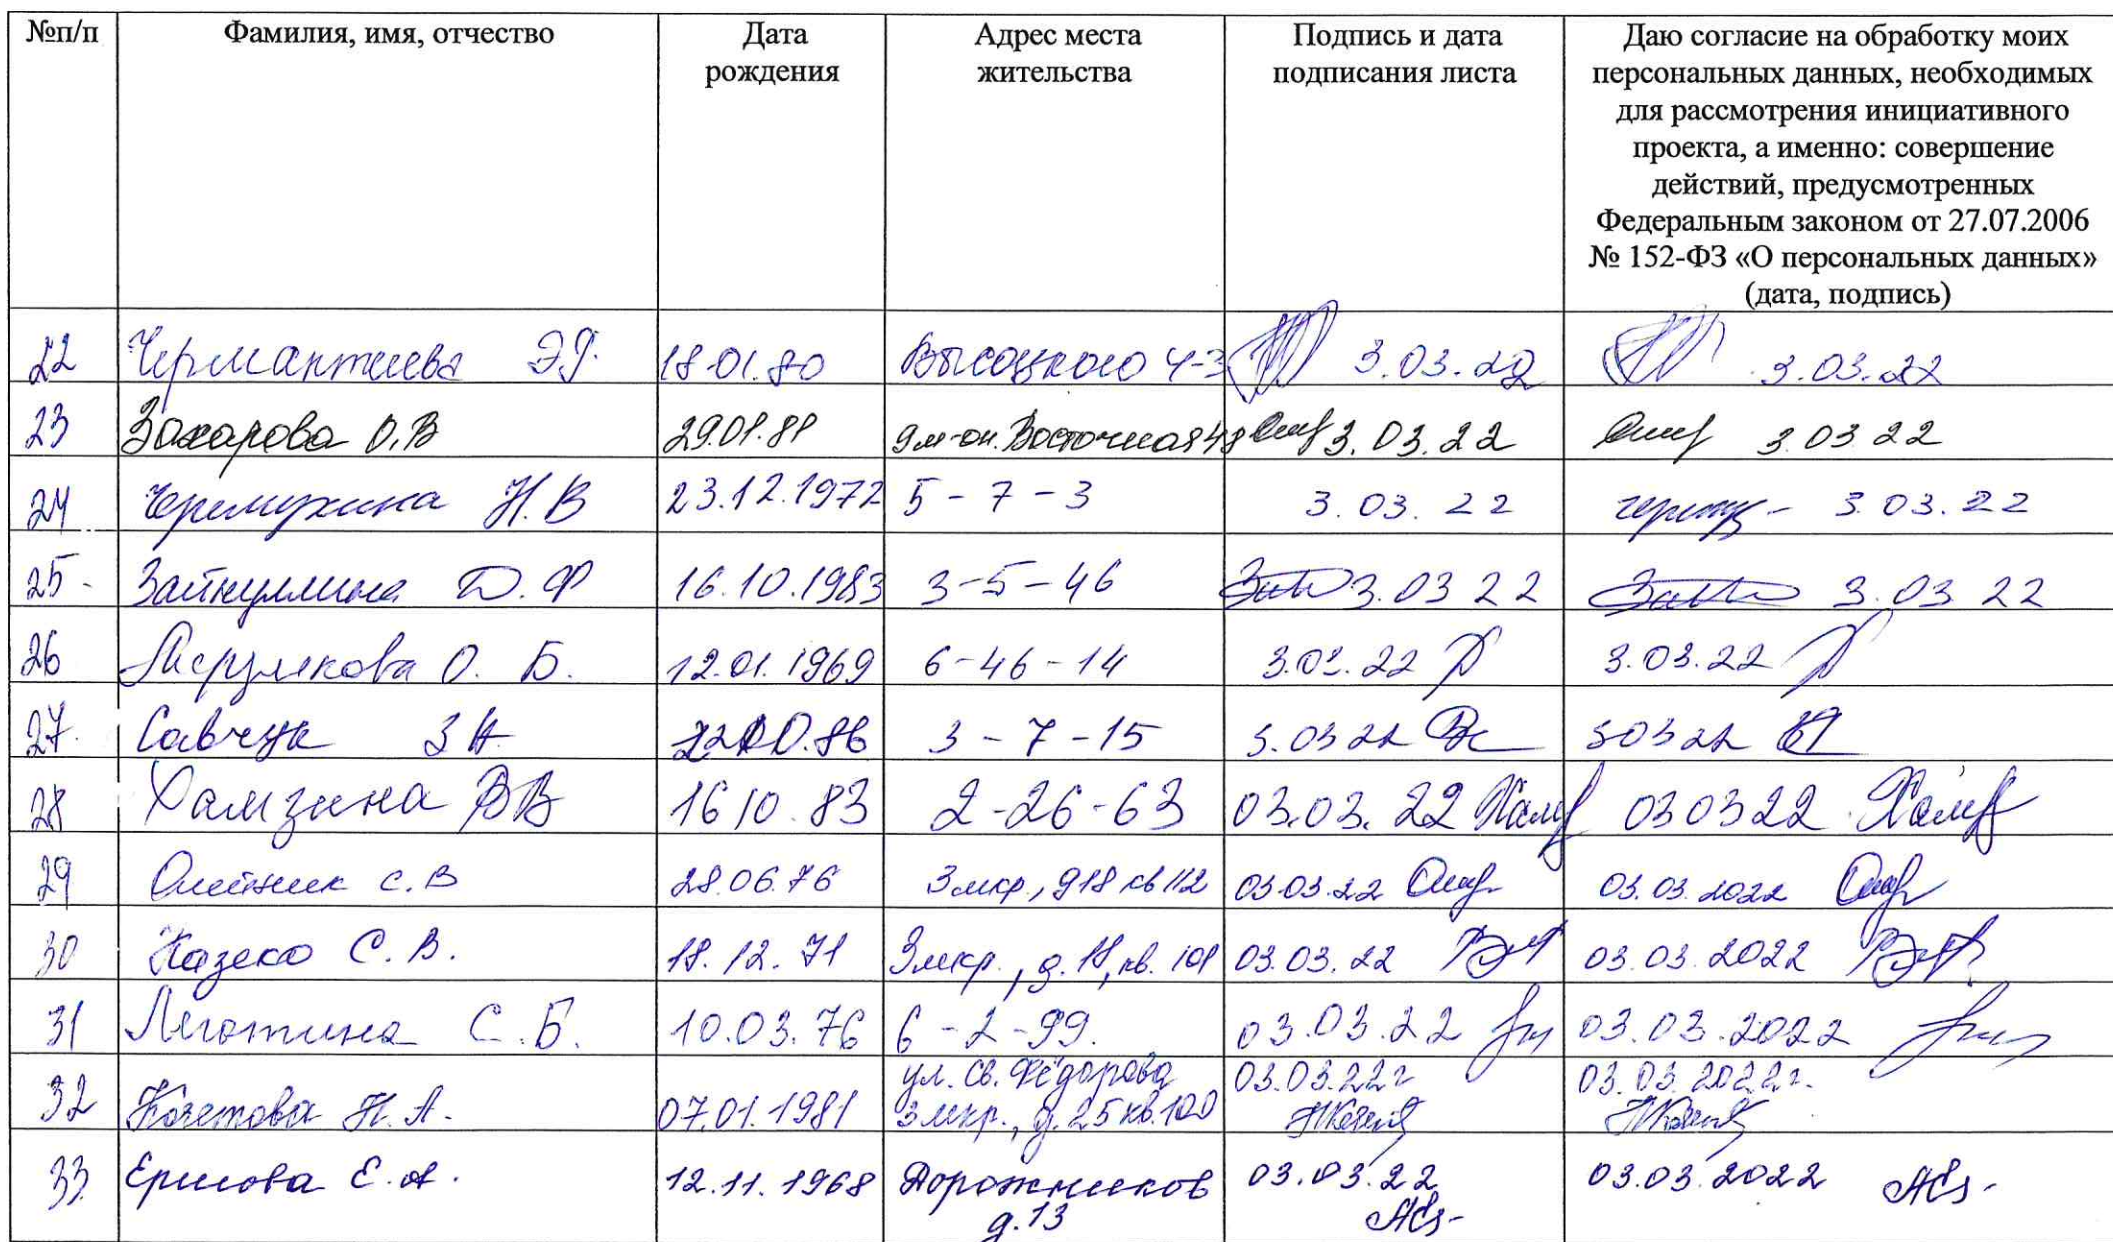 №п/п Фамилия, имя, отчество Дата рождения Адрес места жительства Подпись и дата подписания листа Даю согласие на обработку моих
персональных данных, необходимых
для рассмотрения инициативного
проекта, а именно: совершение
действий, предусмотренных
Федеральным законом от 27.07.2006
№ 152-ФЗ «О персональных данных»
(дата, подпись)
22 Чермантеева Э.Г. 18.01.80 Высоцкого 4-3 3.03.22 3.03.22
23 Захарова О.В 29.01.81 9 м-он. Восточная 48 3.03.22 3 03 22
24 Черемухина Н.В 23.12.1972 5-7-3 3.03.22 3.03.22
25- Зайнуллина D.Ф 16.10.1983 3-5-46 3.03 22 3.03 22
26 О. Б. 12.01.1969 6-46-14 3.03.22 3.03.22
27. Савчук З Н 86 3-7-15 3.03 22 303 22
28 Хамзина В В 16 10 83 2-26-63 03.03.22 03 03 22
29 Олейник С.В 28.06.76 3 мкр., д18 кв 112 03.03.22 03.03.2022
30 Казеко С.В. 18.12.71 3 мкр., д. кв. 101 03.03.22 03.03.2022
31 Леготина С.Б. 10.03.76 6-2-99. 03.03.22 03.03.2022
32 Кочетова Н.А. 07.01.1981 ул. Св. Фёдорова 03.03.22г 03.03.2022г.
3 мкр., д.25 кв.100
33 Ершова Е.А. 12.11.1968 Дорожников 03.03.22 03.03.2022
д.13